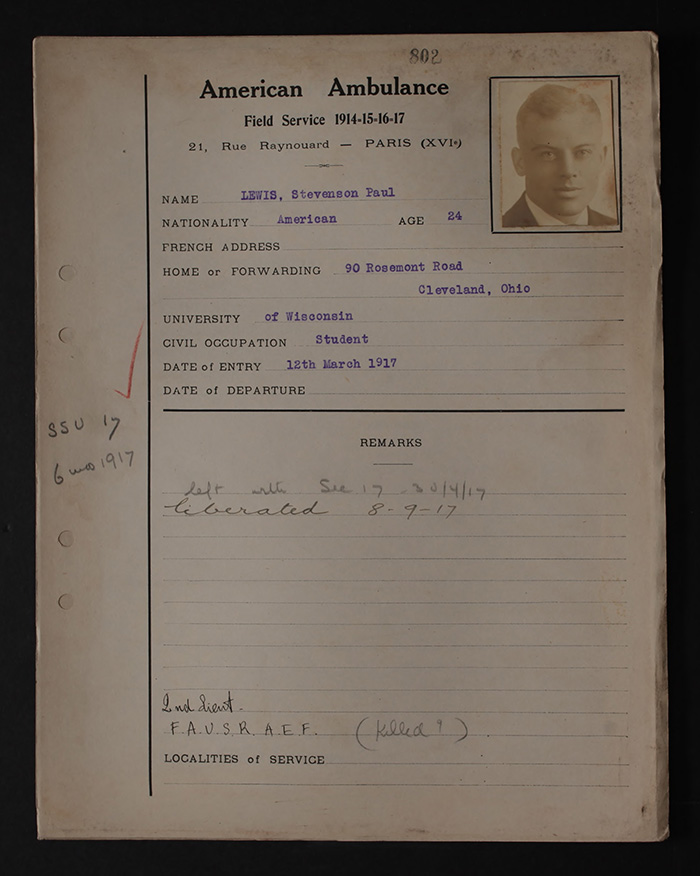 802
American Ambulance
Field Service 1914-15-16-17
21, Rue Raynouard — PARIS (XVIe)
NAME LEWIS, Stevenson Paul
NATIONALITY American AGE 24
FRENCH ADDRESS
HOME or FORWARDING 90 Rosemont Road
Cleveland, Ohio
UNIVERSITY of Wisconsin
CIVIL OCCUPATION Student
DATE of ENTRY 12th March 1917
DATE of DEPARTURE
SSU 17
6 mos 1917
REMARKS
left with Sec 17 - 30/4/17
liberated 8-9-17
2nd Lieut.
F.A.U.S.R. A.E.F. (Killed?)
LOCALITIES of SERVICE